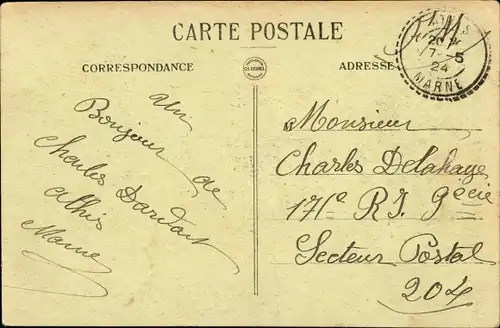 CARTE POSTALE
CORRESPONDANCE
ADRESSE
20
7-5
24
MARNE
F.M.
Un
Bonjour de
Charles Dardart
Athis
Marne
Monsieur
Charles Delahaye
171e R.I. 9e Cie
Secteur Postal
204